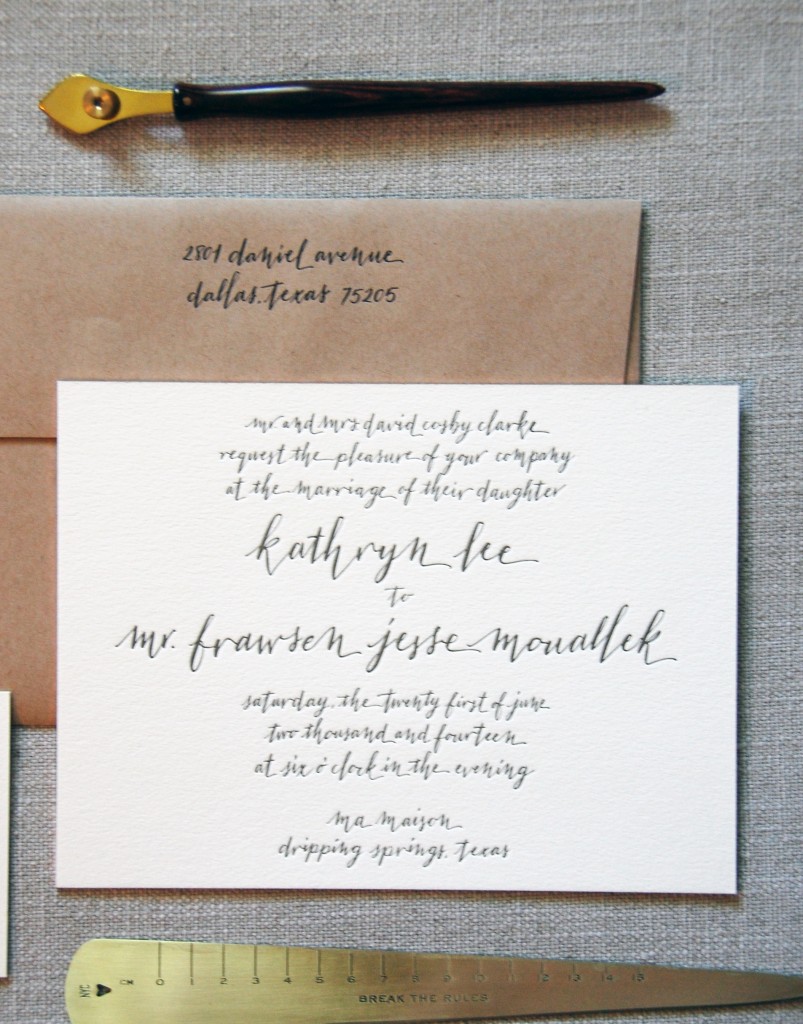 2801 daniel avenue
dallas, texas 75205
mr. and mrs. david cosby clarke
request the pleasure of your company
at the marriage of their daughter
kathryn lee
to
mr. frawsen jesse mouallek
saturday, the twenty first of june
two thousand and fourteen
at six o'clock in the evening
ma maison
dripping springs, texas
NYC ♥ CM 0 1 2 3 4 5 6 7 8 9 10 11 12 13 14 15
BREAK THE RULES